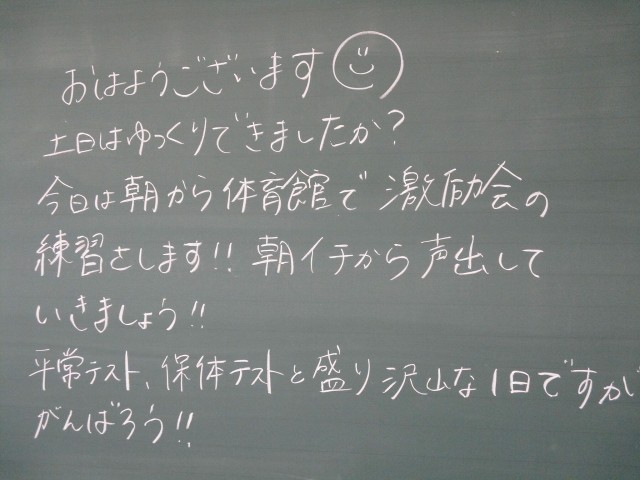 おはようございます
土日はゆっくりできましたか？
今日は朝から体育館で激励会の
練習をします!! 朝イチから声出して
いきましょう!!
平常テスト、保体テストと盛り沢山な1日ですが
がんばろう!!